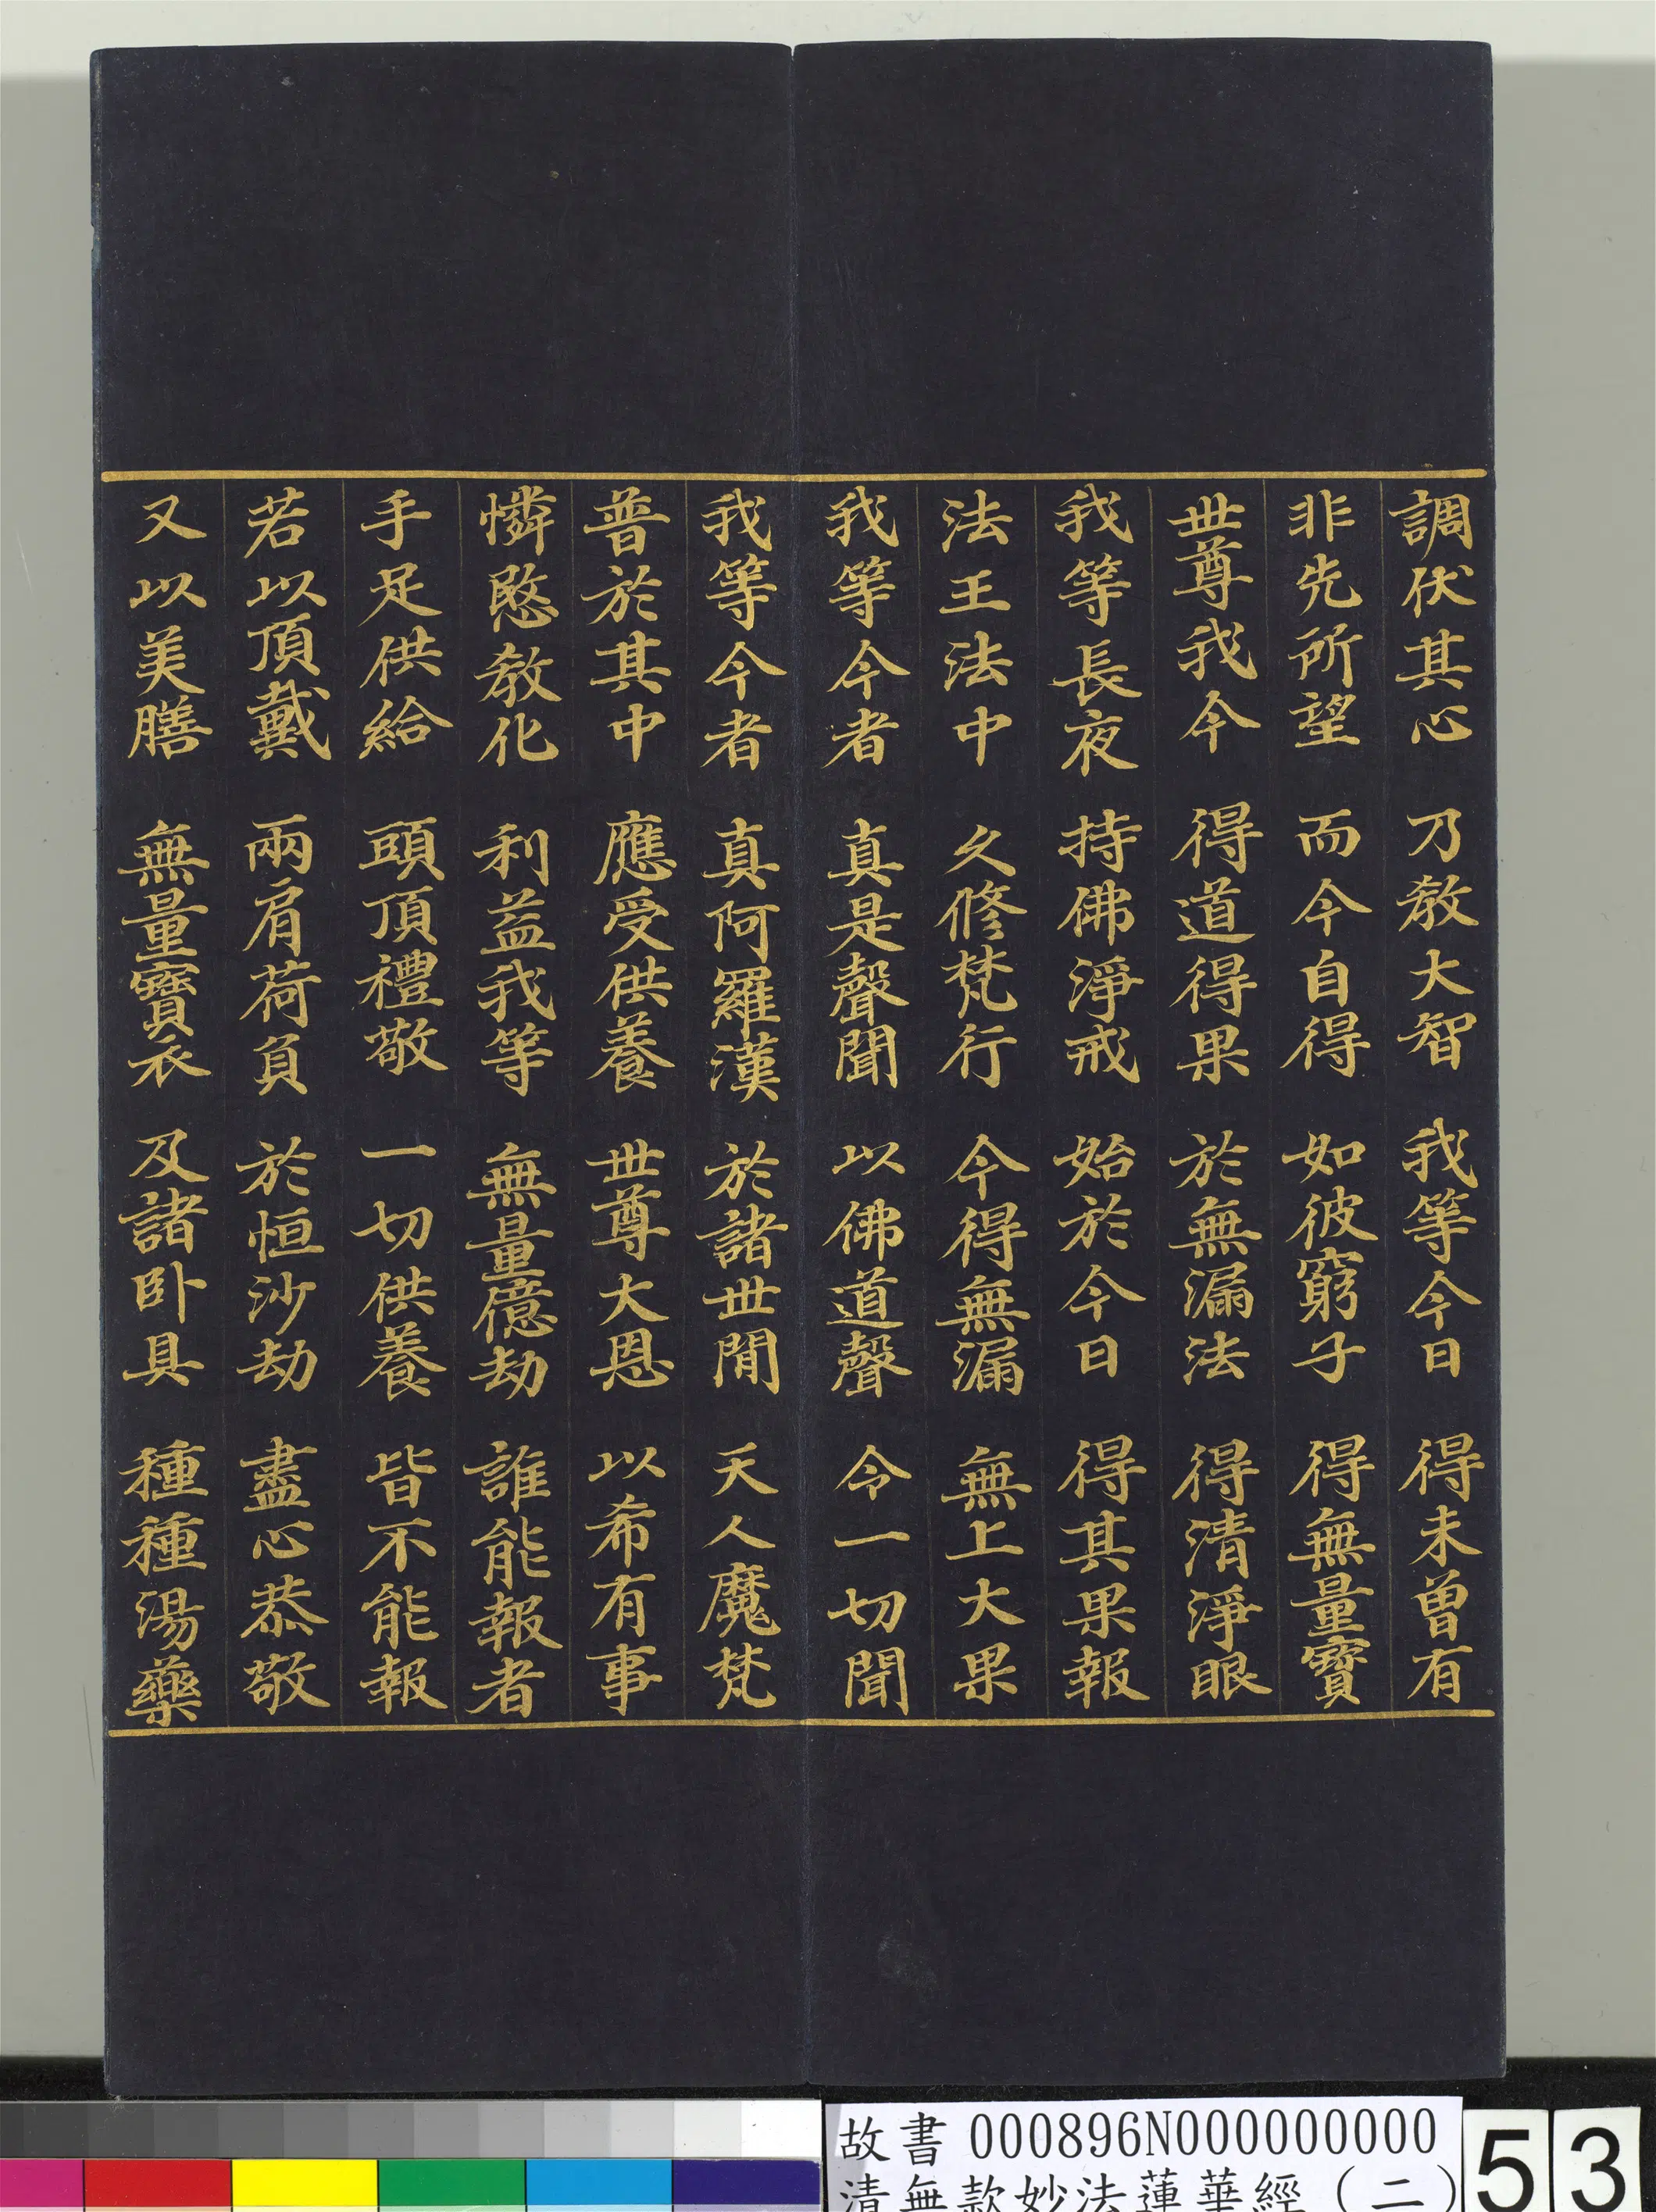 調伏其心　乃教大智　我等今日　得未曾有
非先所望　而今自得　如彼窮子　得無量寶
世尊我今　得道得果　於無漏法　得清淨眼
我等長夜　持佛淨戒　始於今日　得其果報
法王法中　久修梵行　今得無漏　無上大果
我等今者　真是聲聞　以佛道聲　令一切聞
我等今者　真阿羅漢　於諸世閒　天人魔梵
普於其中　應受供養　世尊大恩　以希有事
憐愍教化　利益我等　無量億劫　誰能報者
手足供給　頭頂禮敬　一切供養　皆不能報
若以頂戴　兩肩荷負　於恒沙劫　盡心恭敬
又以美膳　無量寶衣　及諸臥具　種種湯藥
故書 000896N000000000
清無款妙法蓮華經（二）
53